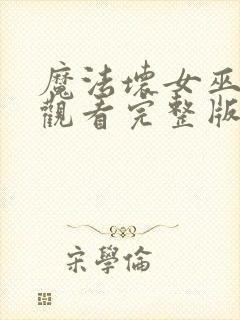 魔法壞女巫
觀看完整版
宋學倫